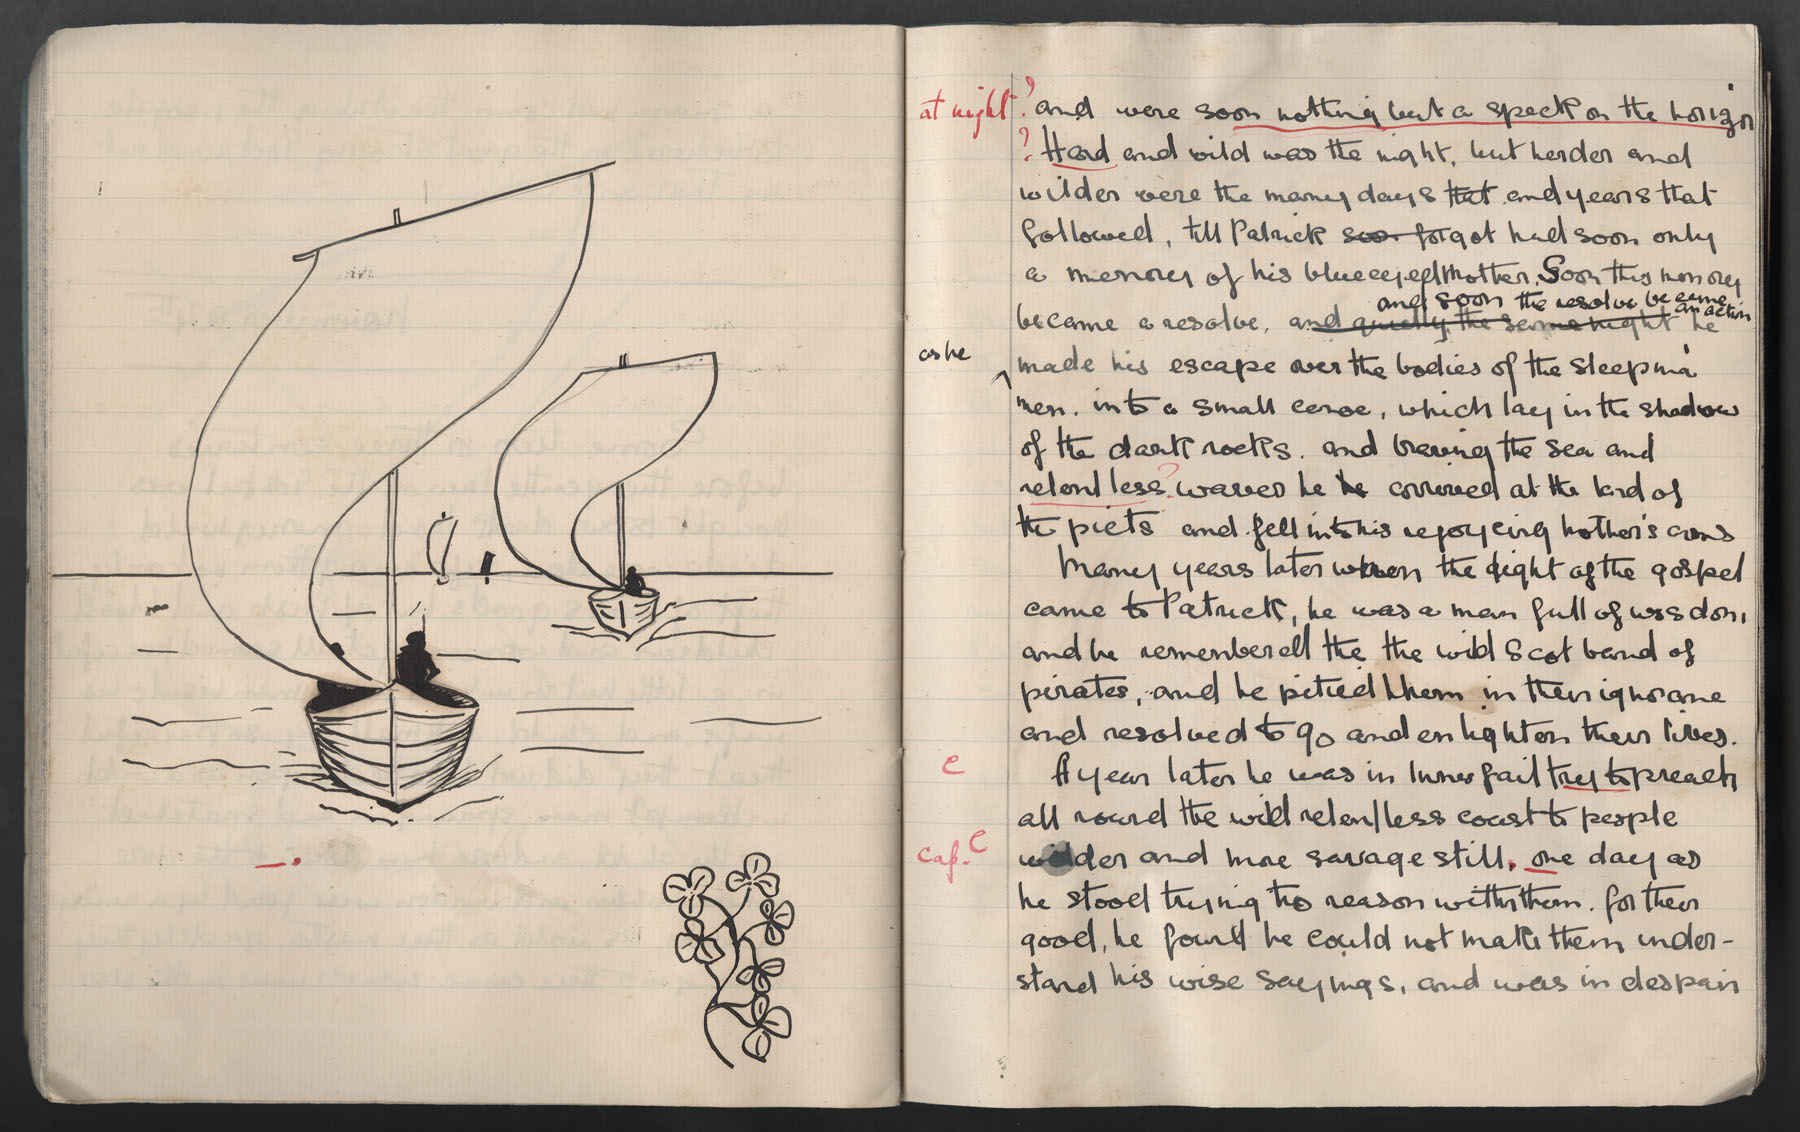 at night ? and were soon nothing but a speck on the horizon
? Hard and wild was the night, but harder and
wilder were the many days that and years that
followed, till Patrick soon forgot had soon only
a memory of his blue eyed mother. Soon this memory
and soon the resolve became an action
became a resolve, and quietly the same night he
as he
made his escape over the bodies of the sleeping
men. into a small canoe, which lay in the shadow
of the dark rocks. and braving the sea and
relentless? waves he he arrived at the land of
the picts and fell into his rejoycing mother's arms
Many years later when the light of the gospel
came to Patrick, he was a man full of wisdom,
and he remembered the the wild Scot band of
pirates, and he pitied them in their ignorane
and resolved to go and enlighten their lives.
e A year later he was in Innesfail try to preach
all round the wild relentless coast to people
cap. e wilder and more savage still. one day as
he stood trying to reason with them. for their
good, he found he could not make them under-
stand his wise sayings, and was in despair